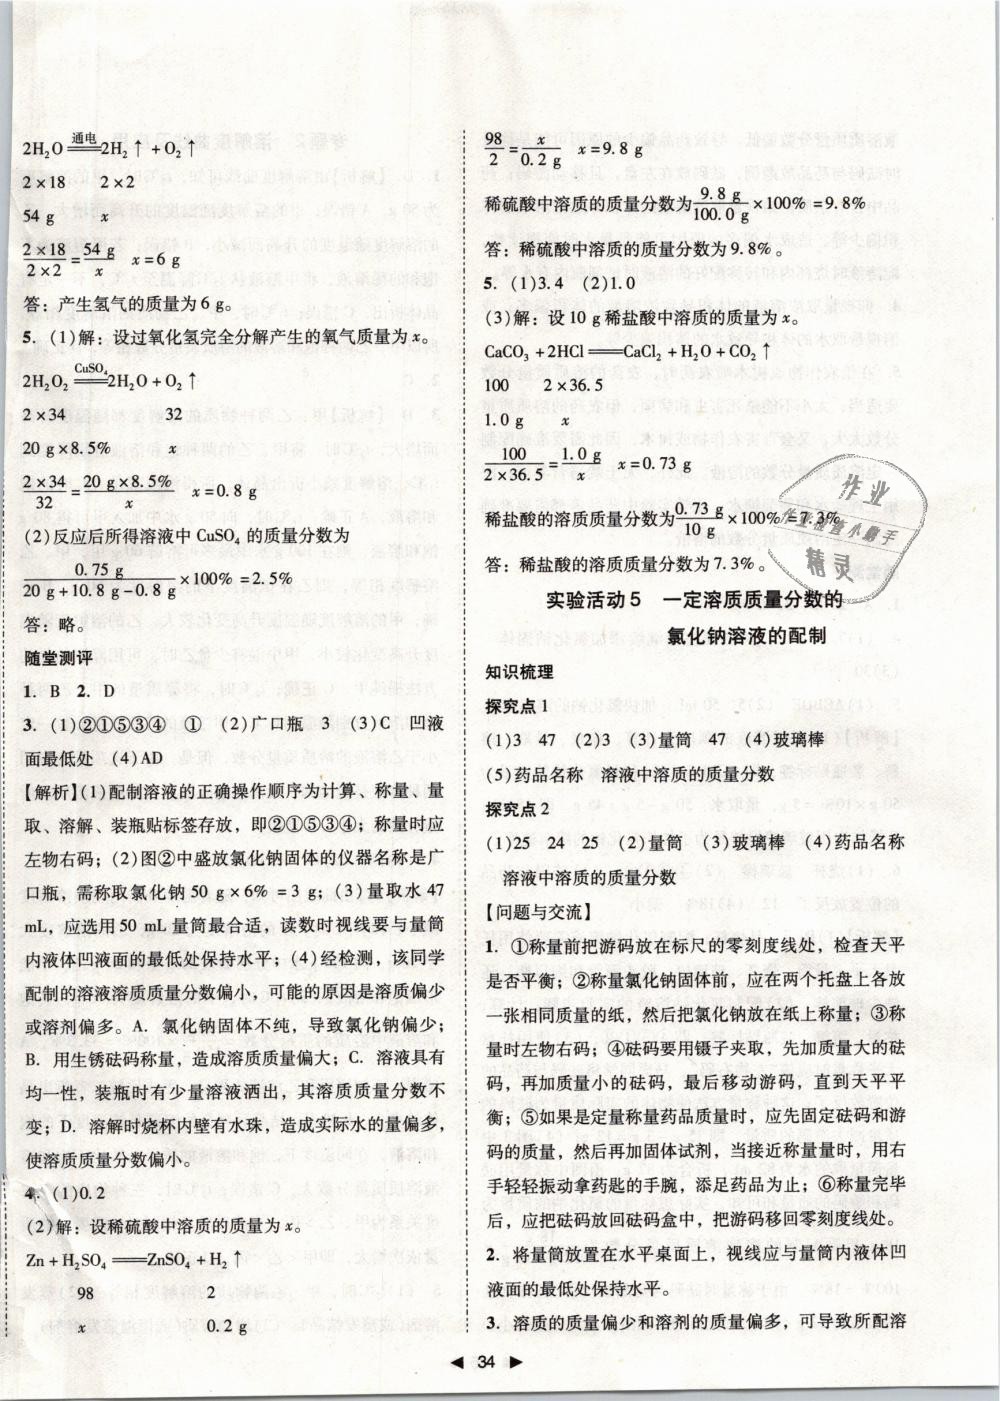 2H₂O ══通电══ 2H₂↑+O₂↑
2×18 2×2
54 g x
2×18/2×2=54 g/x x=6 g
答：产生氢气的质量为6 g。
5. (1)解：设过氧化氢完全分解产生的氧气质量为x。
2H₂O₂ ══CuSO₄══ 2H₂O+O₂↑
2×34 32
20 g×8.5% x
2×34/32=20 g×8.5%/x x=0.8 g
(2)反应后所得溶液中CuSO₄的质量分数为
0.75 g/20 g+10.8 g-0.8 g×100%=2.5%
答：略。
随堂测评
1. B 2. D
3. (1)②①⑤③④ ① (2)广口瓶 3 (3)C 凹液
面最低处 (4)AD
【解析】(1)配制溶液的正确操作顺序为计算、称量、量
取、溶解、装瓶贴标签存放，即②①⑤③④；称量时应
左物右码；(2)图②中盛放氯化钠固体的仪器名称是广
口瓶，需称取氯化钠50 g×6%=3 g；(3)量取水47
mL，应选用50 mL量筒最合适，读数时视线要与量筒
内液体凹液面的最低处保持水平；(4)经检测，该同学
配制的溶液溶质质量分数偏小，可能的原因是溶质偏少
或溶剂偏多。A. 氯化钠固体不纯，导致氯化钠偏少；
B. 用生锈砝码称量，造成溶质质量偏大；C. 溶液具有
均一性，装瓶时有少量溶液洒出，其溶质质量分数不
变；D. 溶解时烧杯内壁有水珠，造成实际水的量偏多，
使溶质质量分数偏小。
4. (1)0.2
(2)解：设稀硫酸中溶质的质量为x。
Zn+H₂SO₄══ZnSO₄+H₂↑
98 2
x 0.2 g
98/2=x/0.2 g x=9.8 g
稀硫酸中溶质的质量分数为9.8 g/100.0 g×100%=9.8%
答：稀硫酸中溶质的质量分数为9.8%。
5. (1)3.4 (2)1.0
(3)解：设10 g稀盐酸中溶质的质量为x。
CaCO₃+2HCl══CaCl₂+H₂O+CO₂↑
100 2×36.5
1.0 g x
100/2×36.5=1.0 g/x x=0.73 g
稀盐酸的溶质质量分数为0.73 g/10 g×100%=7.3%。
答：稀盐酸的溶质质量分数为7.3%。
作业
精灵
实验活动5 一定溶质质量分数的
氯化钠溶液的配制
知识梳理
探究点1
(1)3 47 (2)3 (3)量筒 47 (4)玻璃棒
(5)药品名称 溶液中溶质的质量分数
探究点2
(1)25 24 25 (2)量筒 (3)玻璃棒 (4)药品名称
溶液中溶质的质量分数
【问题与交流】
1. ①称量前把游码放在标尺的零刻度线处，检查天平
是否平衡；②称量氯化钠固体前，应在两个托盘上各放
一张相同质量的纸，然后把氯化钠放在纸上称量；③称
量时左物右码；④砝码要用镊子夹取，先加质量大的砝
码，再加质量小的砝码，最后移动游码，直到天平平
衡；⑤如果是定量称量药品质量时，应先固定砝码和游
码的质量，然后再加固体试剂，当接近称量量时，用右
手轻轻振动拿药匙的手腕，添足药品为止；⑥称量完毕
后，应把砝码放回砝码盒中，把游码移回零刻度线处。
2. 将量筒放置在水平桌面上，视线应与量筒内液体凹
液面的最低处保持水平。
3. 溶质的质量偏少和溶剂的质量偏多，可导致所配溶
◀ 34 ▶